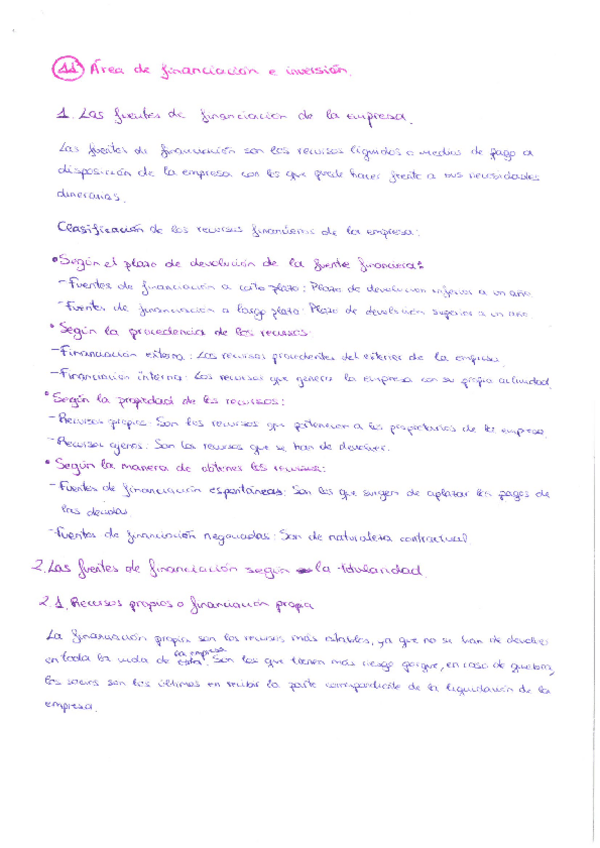 11 Área de financiación e inversión.
1. Las fuentes de financiación de la empresa.
Las fuentes de financiación son los recursos líquidos o medios de pago a
disposición de la empresa con los que puede hacer frente a sus necesidades
dinerarias.
Clasificación de los recursos financieros de la empresa:
• Según el plazo de devolución de la fuente financiera:
- Fuentes de financiación a corto plazo: Plazo de devolución inferior a un año.
- Fuentes de financiación a largo plazo: Plazo de devolución superior a un año.
• Según la procedencia de los recursos:
- Financiación externa: Los recursos procedentes del exterior de la empresa.
- Financiación interna: Los recursos que genera la empresa con su propia actividad.
• Según la propiedad de los recursos:
- Recursos propios: Son los recursos que pertenecen a los propietarios de la empresa.
- Recursos ajenos: Son los recursos que se han de devolver.
• Según la manera de obtener los recursos:
- Fuentes de financiación espontáneas: Son las que surgen de aplazar los pagos de
las deudas.
- Fuentes de financiación negociadas: Son de naturaleza contractual
2. Las fuentes de financiación según la titularidad.
2.1. Recursos propios o financiación propia
La financiación propia son los recursos más estables, ya que no se han de devolver
en toda la vida de la empresa. Son los que tienen más riesgo porque, en caso de quiebra,
los socios son los últimos en recibir la parte correspondiente de la liquidación de la
empresa.